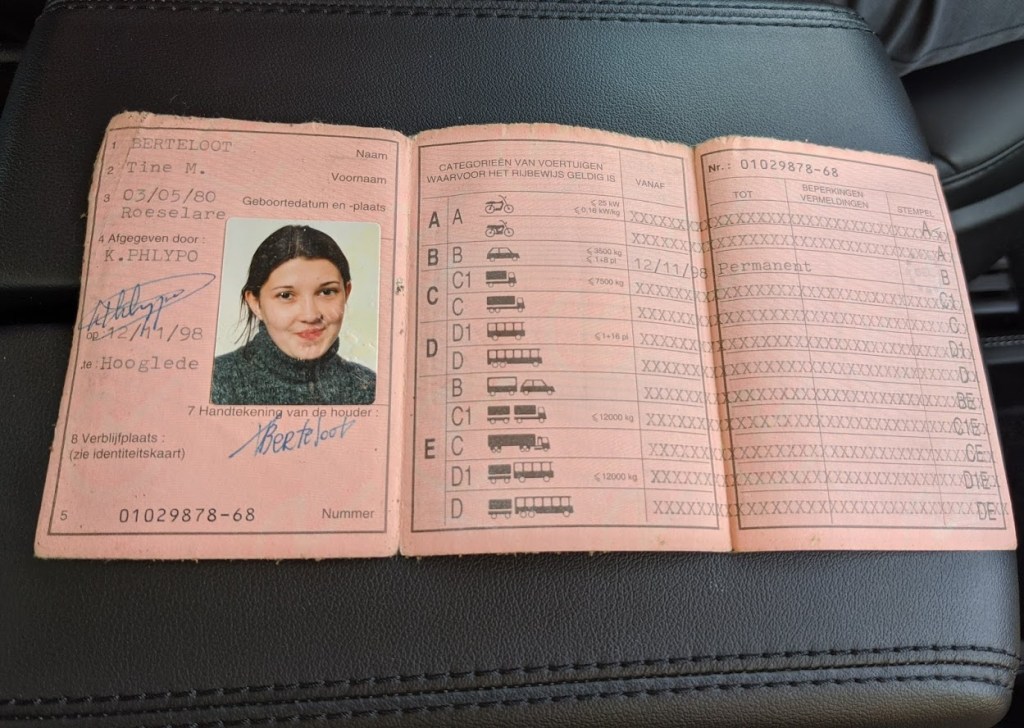 1 BERTELOOT Naam
2 Tine M. Voornaam
3 03/05/80
Roeselare Geboortedatum en -plaats
4 Afgegeven door :
K.PHLYPO
op 12/11/98
te: Hooglede
7 Handtekening van de houder :
Berteloot
8 Verblijfplaats :
(zie identiteitskaart)
5 01029878-68 Nummer
CATEGORIEËN VAN VOERTUIGEN
WAARVOOR HET RIJBEWIJS GELDIG IS
VANAF
A A ≤ 25 kW
≤ 0,16 kW/kg
B B ≤ 3500 kg
≤ 1+8 pl
12/11/98 Permanent
C C1 ≤ 7500 kg
C
D D1 ≤ 1+16 pl
D
E B
C1 ≤ 12000 kg
C
D1 ≤ 12000 kg
D
Nr.: 01029878-68
TOT
BEPERKINGEN
VERMELDINGEN
STEMPEL
A
A
B
C1
C
D1
D
BE
C1E
CE
D1E
DE